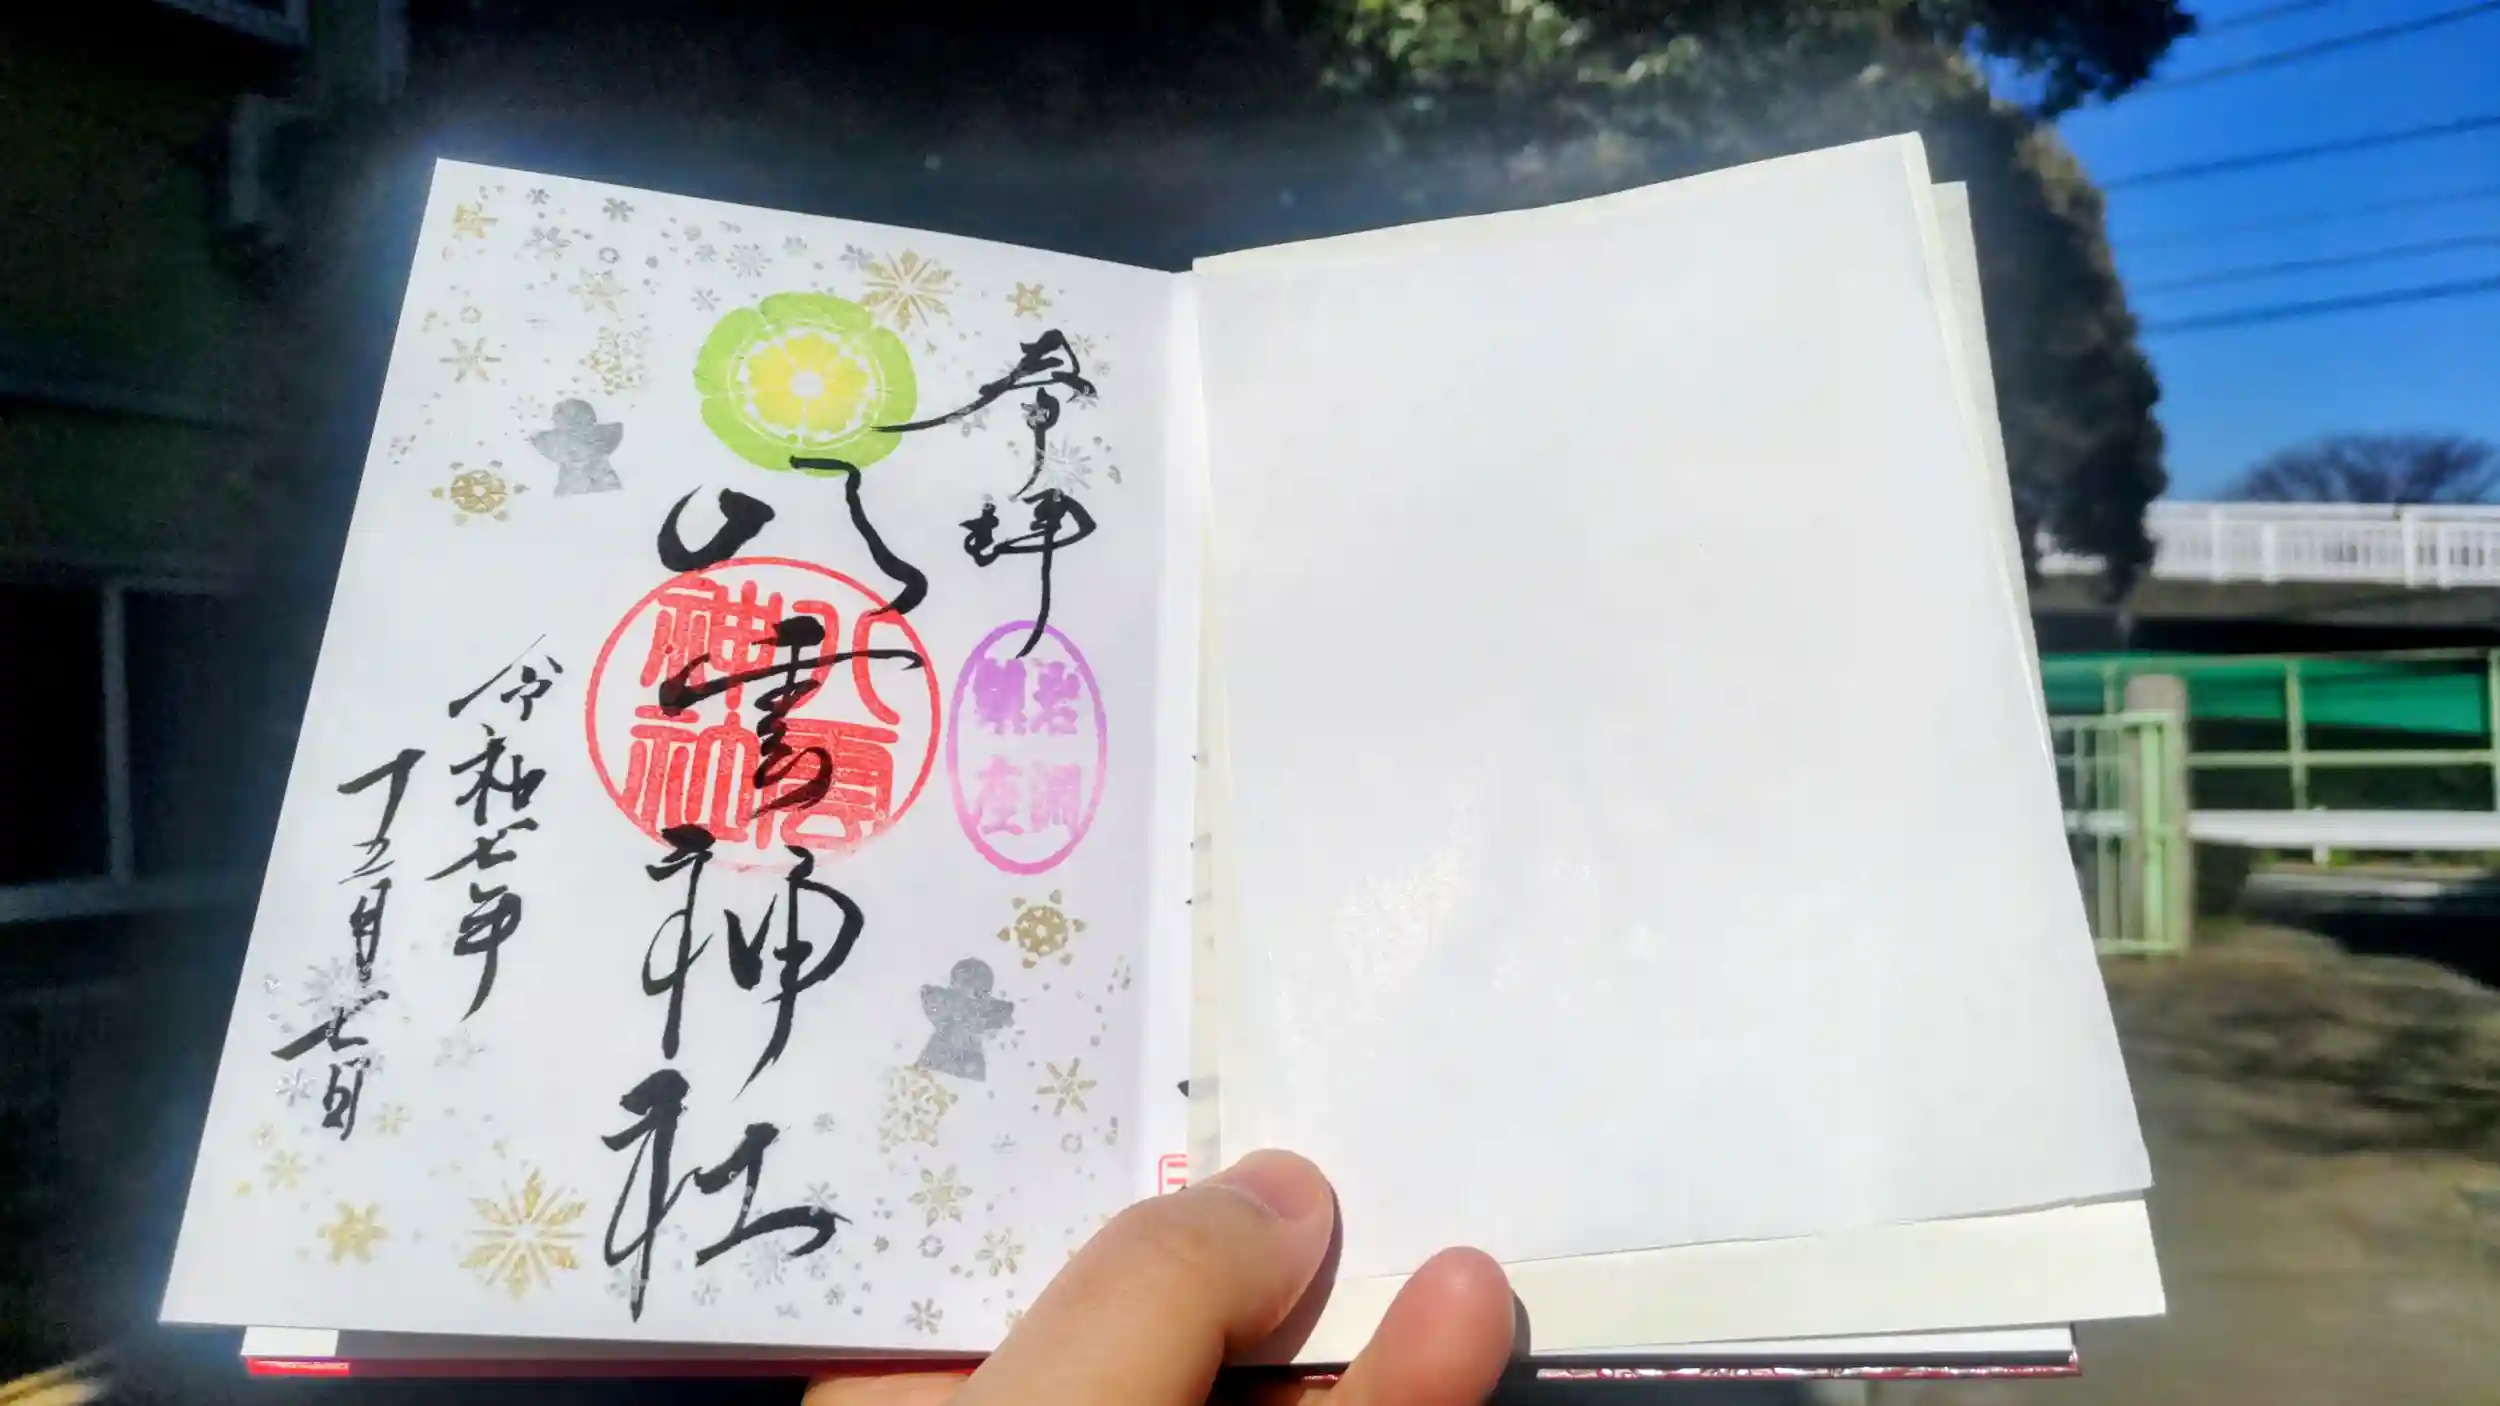 奉拝
岩淵
鎮座
八雲神社
八雲
神社
令和七年
十二月七日